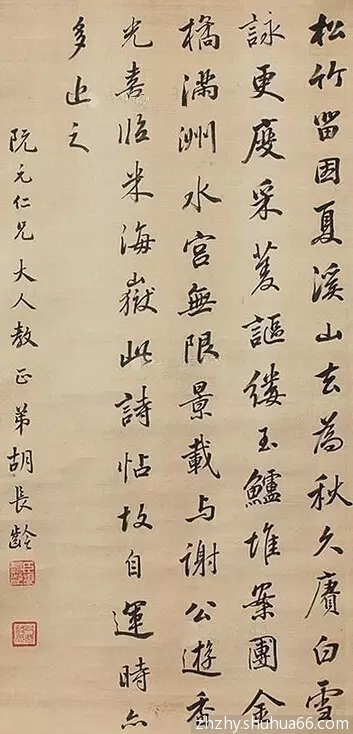 松竹留因夏溪山去為秋久賡白雪
詠更度采菱謳縷玉鱸堆案團金
橘滿洲水宮無限景載与謝公遊香
光喜臨米海嶽此詩帖故自運時亦
多近之
阮元仁兄大人教正弟胡長齡
zhzhy.shuhua66.com